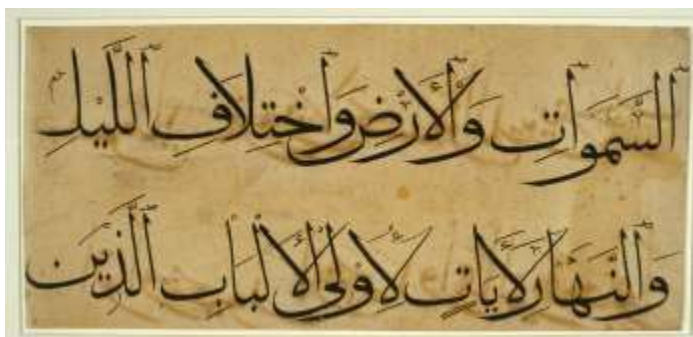 السَّمَوَاتِ وَالْأَرْضِ وَاخْتِلَافِ اللَّيْلِ
وَالنَّهَارِ لَآيَاتٍ لِأُولِي الْأَلْبَابِ الَّذِينَ